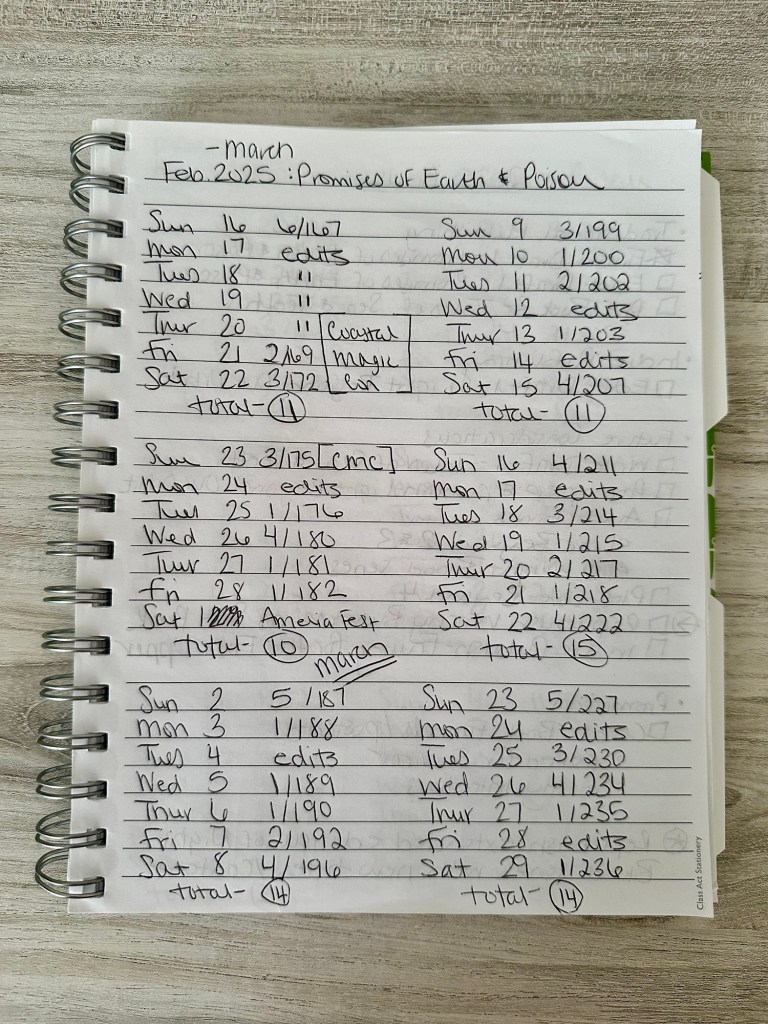 -march
Feb. 2025 : Promises of Earth & Poison
Sun 16 6/167
Mon 17 edits
Tues 18 "
Wed 19 "
Thur 20 "
Fri 21 2/169
Sat 22 3/172
Coastal
Magic
Con
total- 11
Sun 23 3/175 [CMC]
Mon 24 edits
Tues 25 1/176
Wed 26 4/180
Thur 27 1/181
Fri 28 1/182
Sat 1 Amelia Fest
total- 10
march
Sun 2 5/187
Mon 3 1/188
Tues 4 edits
Wed 5 1/189
Thur 6 1/190
Fri 7 2/192
Sat 8 4/196
total- 14
Sun 9 3/199
Mon 10 1/200
Tues 11 2/202
Wed 12 edits
Thur 13 1/203
Fri 14 edits
Sat 15 4/207
total- 11
Sun 16 4/211
Mon 17 edits
Tues 18 3/214
Wed 19 1/215
Thur 20 2/217
Fri 21 1/218
Sat 22 4/222
total- 15
Sun 23 5/227
Mon 24 edits
Tues 25 3/230
Wed 26 4/234
Thur 27 1/235
Fri 28 edits
Sat 29 1/236
total- 14
Class Act Stationery